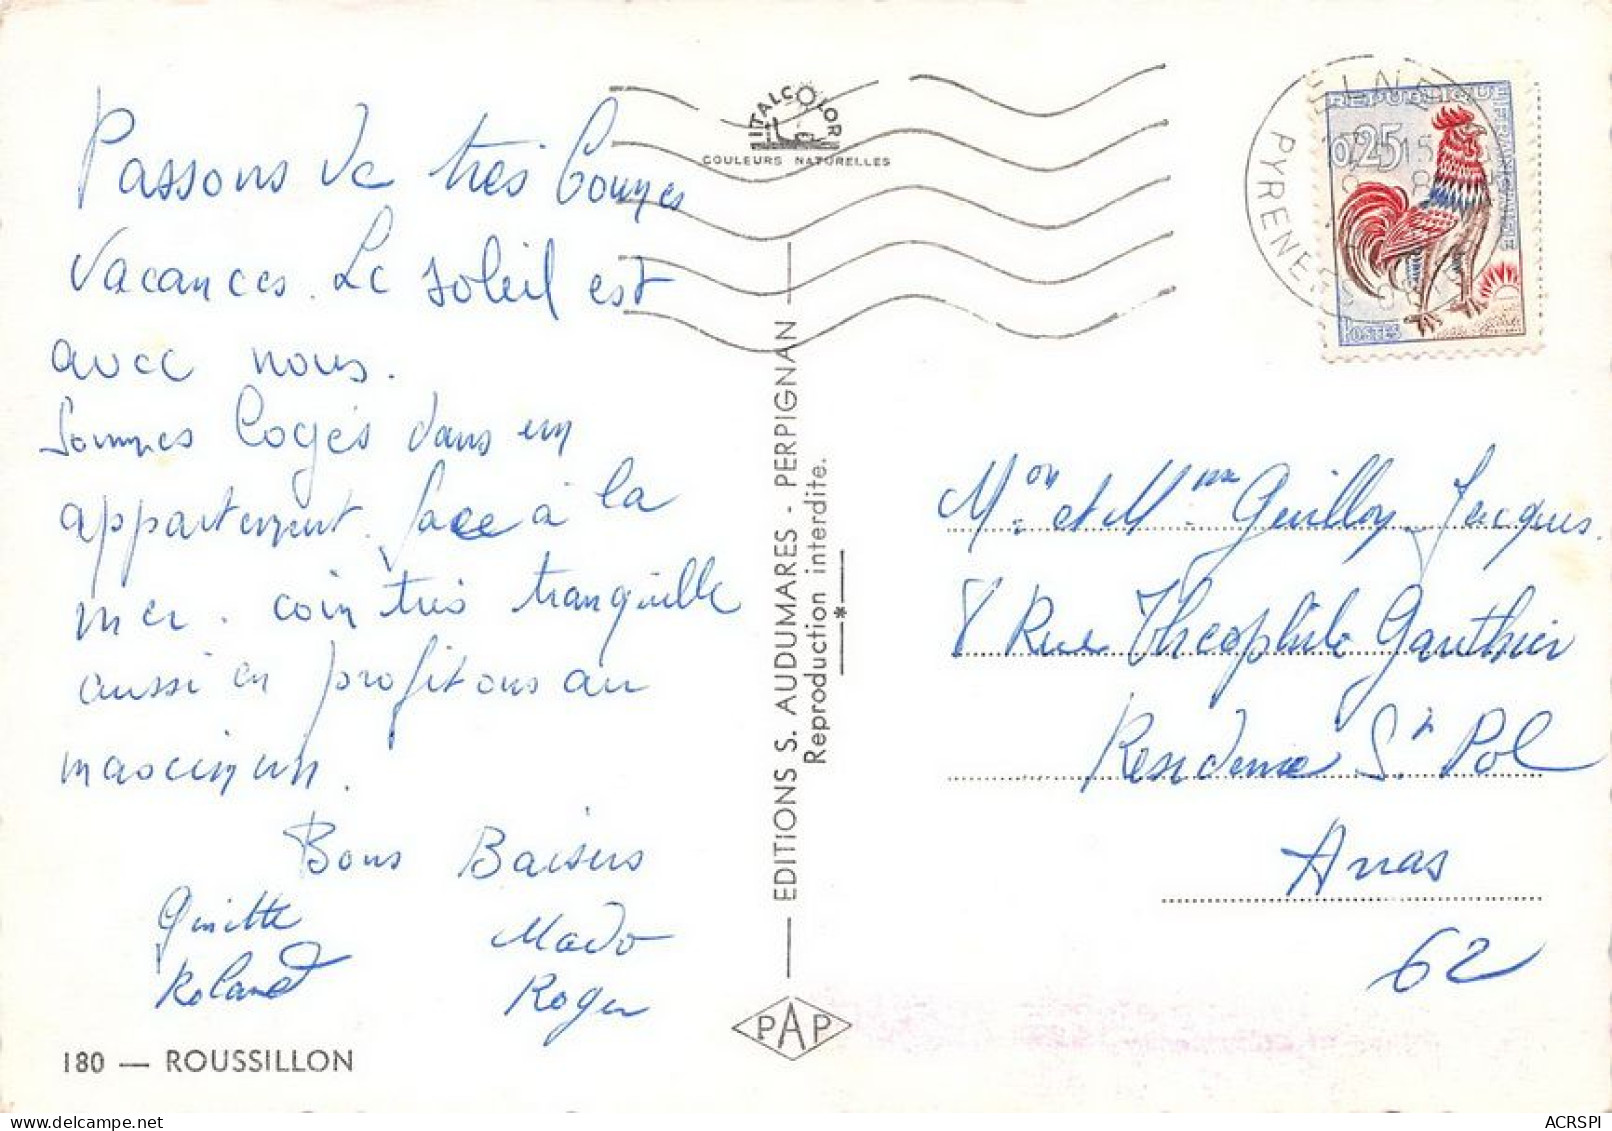 Passons de très bonnes
vacances. Le soleil est
avec nous.
Sommes logés dans un
appartement face à la
mer. coin très tranquille
aussi en profitons au
maximum.
Bons Baisers
Ginette Mado
Roland Roger
180 — ROUSSILLON
ITALCOLOR
COULEURS NATURELLES
EDITIONS S. AUDUMARES - PERPIGNAN
Reproduction interdite.
PAP
ELNE
PYRENEES
REPUBLIQUE FRANÇAISE
0,25
POSTES
Mon. et Mme. Guilloy Jacques.
8 Rue Théophile Gauthier
Residence St Pol
Arras
62
ACRSPI